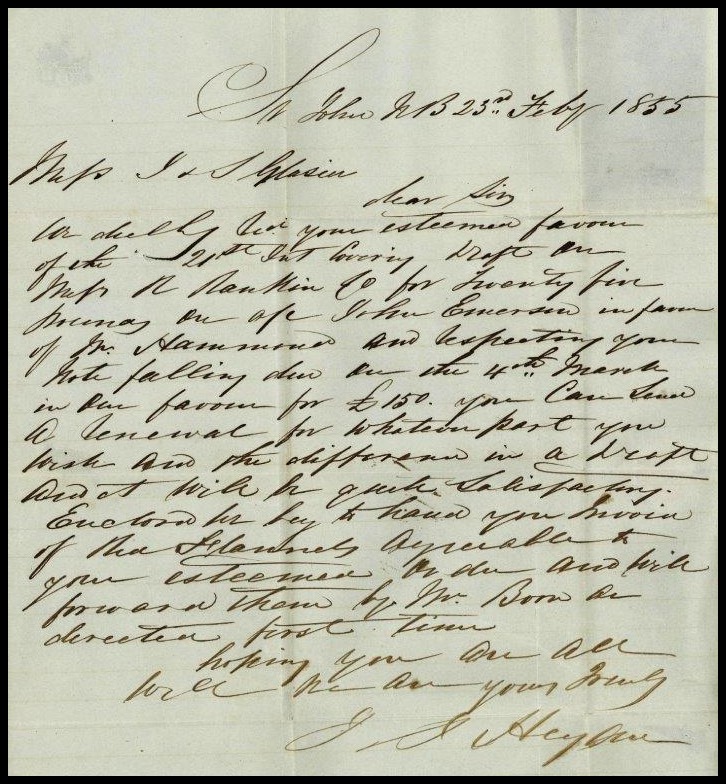 St John NB 23rd Feby 1855
Messs J & S Glasier
dear Sirs
We duelly Recd your esteemed favour
of the 21st Int Covering Draft on
Messs R Rankin & Co for Twenty five
pounds on a/c John Emerson in favour
of Mr. Hammond and respecting your
Note falling due on the 4th March
in our favour for £150. you Can Send
a renewal for whatever part you
wish and the difference in a Draft
and it will be quite Satisfactory.
Enclosed we beg to hand you Invoice
of Red Flannels agreeable to
your esteemed order and will
forward them by Mr as
directed first time
hoping you are all
well we are yours Truly
J & J Hegan